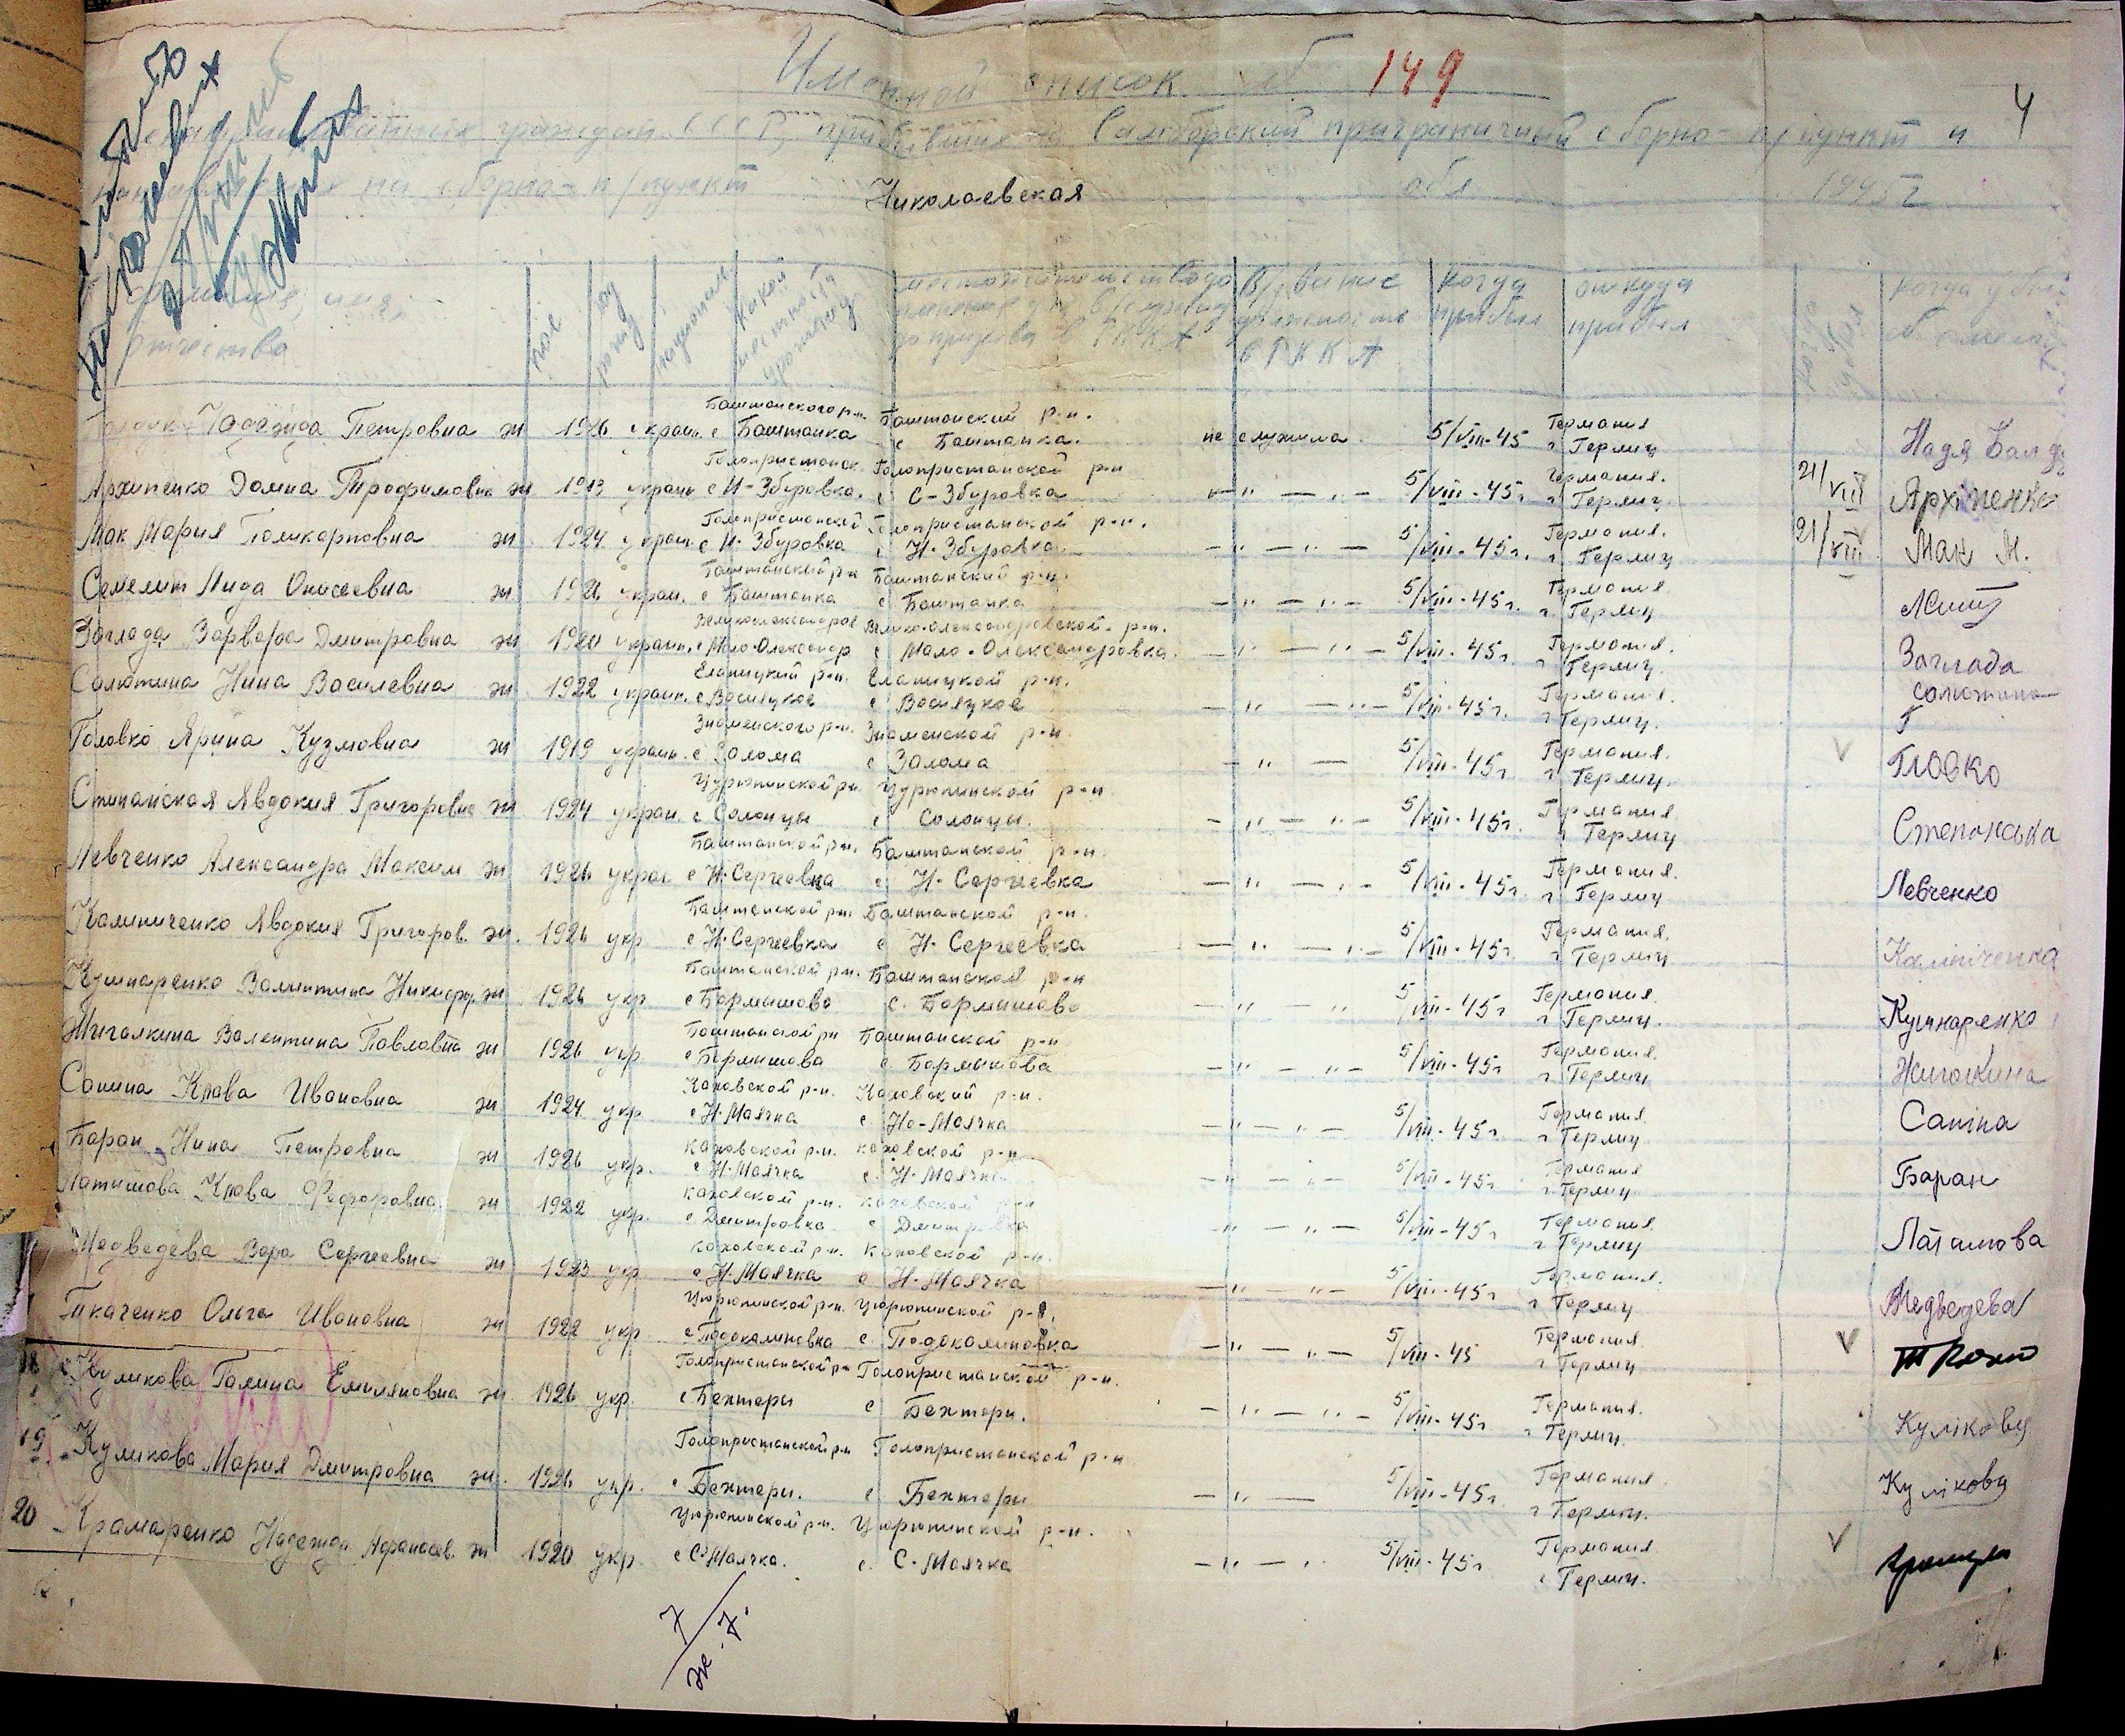 Именной список № 149
4
граждан СССР, прибывших в Самборский приграничный сборно-п/пункт и
на сборно-п/пункт Николаевская обл. 1945 г
Фамилия, имя, отчество
пол
национальн
местожительство
В/звание
в РККА
когда прибыл
откуда прибыл
когда убыл
Надежда Петровна ж 1926 украин. Баштанского р-н. с Баштанка Баштанский р-н. с Баштанка. не служила. 5/VIII-45 Германия г Герлиц Надя
Архипенко Домна Трофимовна ж 1923 украин Голопристанск. с Н-Збуровка. Голопристанской р-н с С-Збуровка —"— —"— 5/VIII-45г. Германия. г Герлиц. 21/VIII Архипенко
Мак Мария Поликарповна ж 1924 украин. Голопристанской с Н-Збуровка Голопристанской р-н. с Н-Збуровка —"— —"— 5/VIII-45г. Германия. г Герлиц 21/VIII Мак М.
Семелит Лида Онисеевна ж 1926 украин. Баштанский р-н с Баштанка Баштанский р-н. с Баштанка —"— —"— 5/VIII-45г. Германия. г Герлиц
Заглада Варвара Дмитровна ж 1920 украин. Великоалександров с Мало-Александр Велико-Александровской р-н. с Мало-Олександровка. —"— —"— 5/VIII-45г. Германия. г Герлиц. Заглада
Салютина Нина Василевна ж 1922 украин. Еланицкий р-н. с Васияцкое Еланицкой р-н. с Васияцкое —"— —"— 5/VIII-45г. Германия. г Герлиц. Солютина
Головко Ярина Кузмовна ж 1919 украин. Знаменского р-н. с Залома Знаменской р-н. с Залома —"— 5/VIII-45г. Германия. г Герлиц. V Гловко
Стипанская Явдокия Григоровна ж 1924 украи. Цурюпинской р-н с Солонцы Цурюпинской р-н с Солонцы. —"— —"— 5/VIII-45г. Германия г Герлиц Степонська
Левченко Александра Максим ж 1926 украи Баштанской р-н. с Н-Сергеевка Баштанской р-н. с Н-Сергеевка —"— —"— 5/VIII-45г. Германия. г Герлиц Левченко
Калиниченко Явдокия Григоров. ж. 1926 укр Баштанской р-н с Н-Сергеевка Баштанской р-н. с Н-Сергеевка —"— —"— 5/VIII-45г. Германия. г Герлиц. Калініченка
Кушнаренко Валинтина Никифор. ж 1926 укр Баштанской р-н. с Бармашово Баштанской р-н с. Бармашово —"— —"— 5/VIII-45г Германия. г Герлиц. Кушнаренко
Жигалкина Валентина Павловна ж 1926 укр Баштанской р-н с Бармашова Баштанской р-н с Бармашова —"— —"— 5/VIII-45г Германия. г Герлиц Жигалкина
Санина Клава Ивановна ж 1924 укр Каховской р-н. с Н-Маячка Каховский р-н. с Но-Маячка —"— —"— 5/VIII-45г. Германия г Герлиц Саніна
Баран Нина Петровна ж 1926 укр. каховской р-н. с Н-Маячка каховской р-н с Н-Маячка —"— —"— 5/VIII-45г Германия г Герлиц Баран
Латишова Клава Федоровна ж 1922 укр. каховской р-н. с Дмитровка каховской р-н с Дмитровка —"— —"— 5/VIII-45г Германия. г Герлиц Латышова
Медведева Вера Сергеевна ж 1923 укр каховской р-н. с Н-Маячка Каховской р-н. с Н-Маячка —"— —"— 5/VIII-45г Германия. г Герлиц Медведева
Ткаченко Ольга Ивановна ж 1922 укр Цюрюпинской р-н. с Подокалиновка Цюрюпинской р-н. с. Подокалиновка —"— —"— 5/VIII-45 Германия г Герлиц V
18 Куликова Галина Емиляновна ж 1926 укр. Голопристанской р-н с Бехтери Голопристанской р-н. с Бехтери. —"— —"— 5/VIII-45г Германия. г Герлиц. Кулікову
19 Куликова Мария Дмитровна ж. 1926 укр. Голопристанской р-н с Бехтери. Голопристанской р-н с Бехтери —"— 5/VIII-45г. Германия. г Герлиц. Кулікову
20 Крамаренко Надежда Афанасев. ж 1920 укр. Цюрюпинской р-н. с С-Маячка. Цюрюпинской р-н. с. С-Маячка —"— —"— 5/VIII-45г. Германия. г Герлиц. V
7
ж. 7.